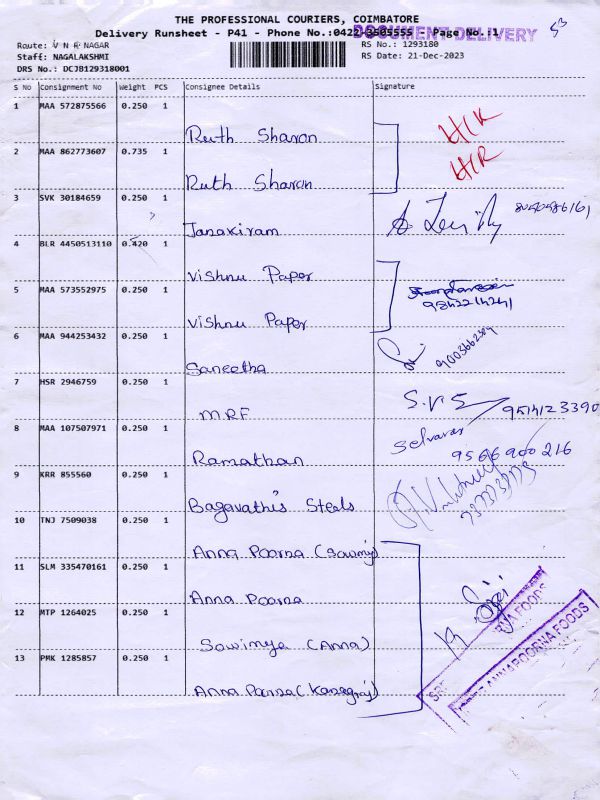 THE PROFESSIONAL COURIERS, COIMBATORE
Delivery Runsheet - P41 - Phone No.:0422-3505555 - Page No.:1
DOCUMENT DELIVERY
53
Route: V N R NAGAR
RS No.: 1293180
Staff: NAGALAKSHMI
RS Date: 21-Dec-2023
DRS No.: DCJB129318001
S No Consignment No Weight PCS Consignee Details Signature
1 MAA 572875566 0.250 1
Ruth Sharon H/R
2 MAA 862773607 0.735 1
Ruth Sharon H/R
3 SVK 30184659 0.250 1
Janakiram
4 BLR 4450513110 0.420 1
Vishnu Paper
5 MAA 573552975 0.250 1
Vishnu Paper
6 MAA 944253432 0.250 1
Sangetha
7 HSR 2946759 0.250 1
MRF S.V.S
8 MAA 107507971 0.250 1
Ramathan Selvaraj 9566900216
9 KRR 855560 0.250 1
Bagavathi's Steels
10 TNJ 7509038 0.250 1
Anna Poorna (Sowmiy)
11 SLM 335470161 0.250 1
Anna Poorna
12 MTP 1264025 0.250 1
Sowimya (Anna)
13 PMK 1285857 0.250 1
Anna Poorna (Kanagraj)
ANNAPOORNA FOODS